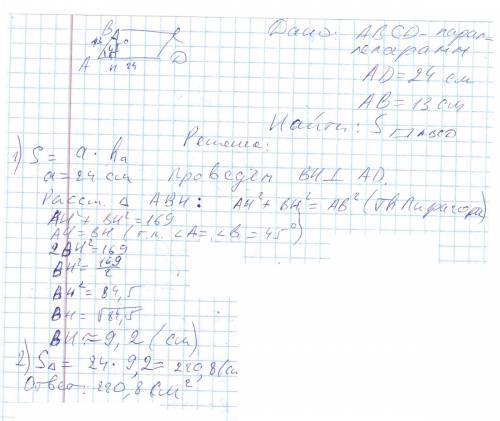 B
A H 24 D
Дано: ABCD - парал-
лелограмм
AD = 24 см
AB = 13 см
Найти: S ABCD
Решение:
1) S = a · ha
a = 24 см проведем BH ⊥ AD.
Рассм. Δ ABH: AH² + BH² = AB² (т. Пифагора)
AH² + BH² = 169
AH = BH (т.к. ∠A = ∠B = 45°)
2BH² = 169
BH² = 169/2
BH² = 84,5
BH = √84,5
BH ≈ 9,2 (см)
2) S = 24 · 9,2 = 220,8 (см
Ответ: 220,8 см²